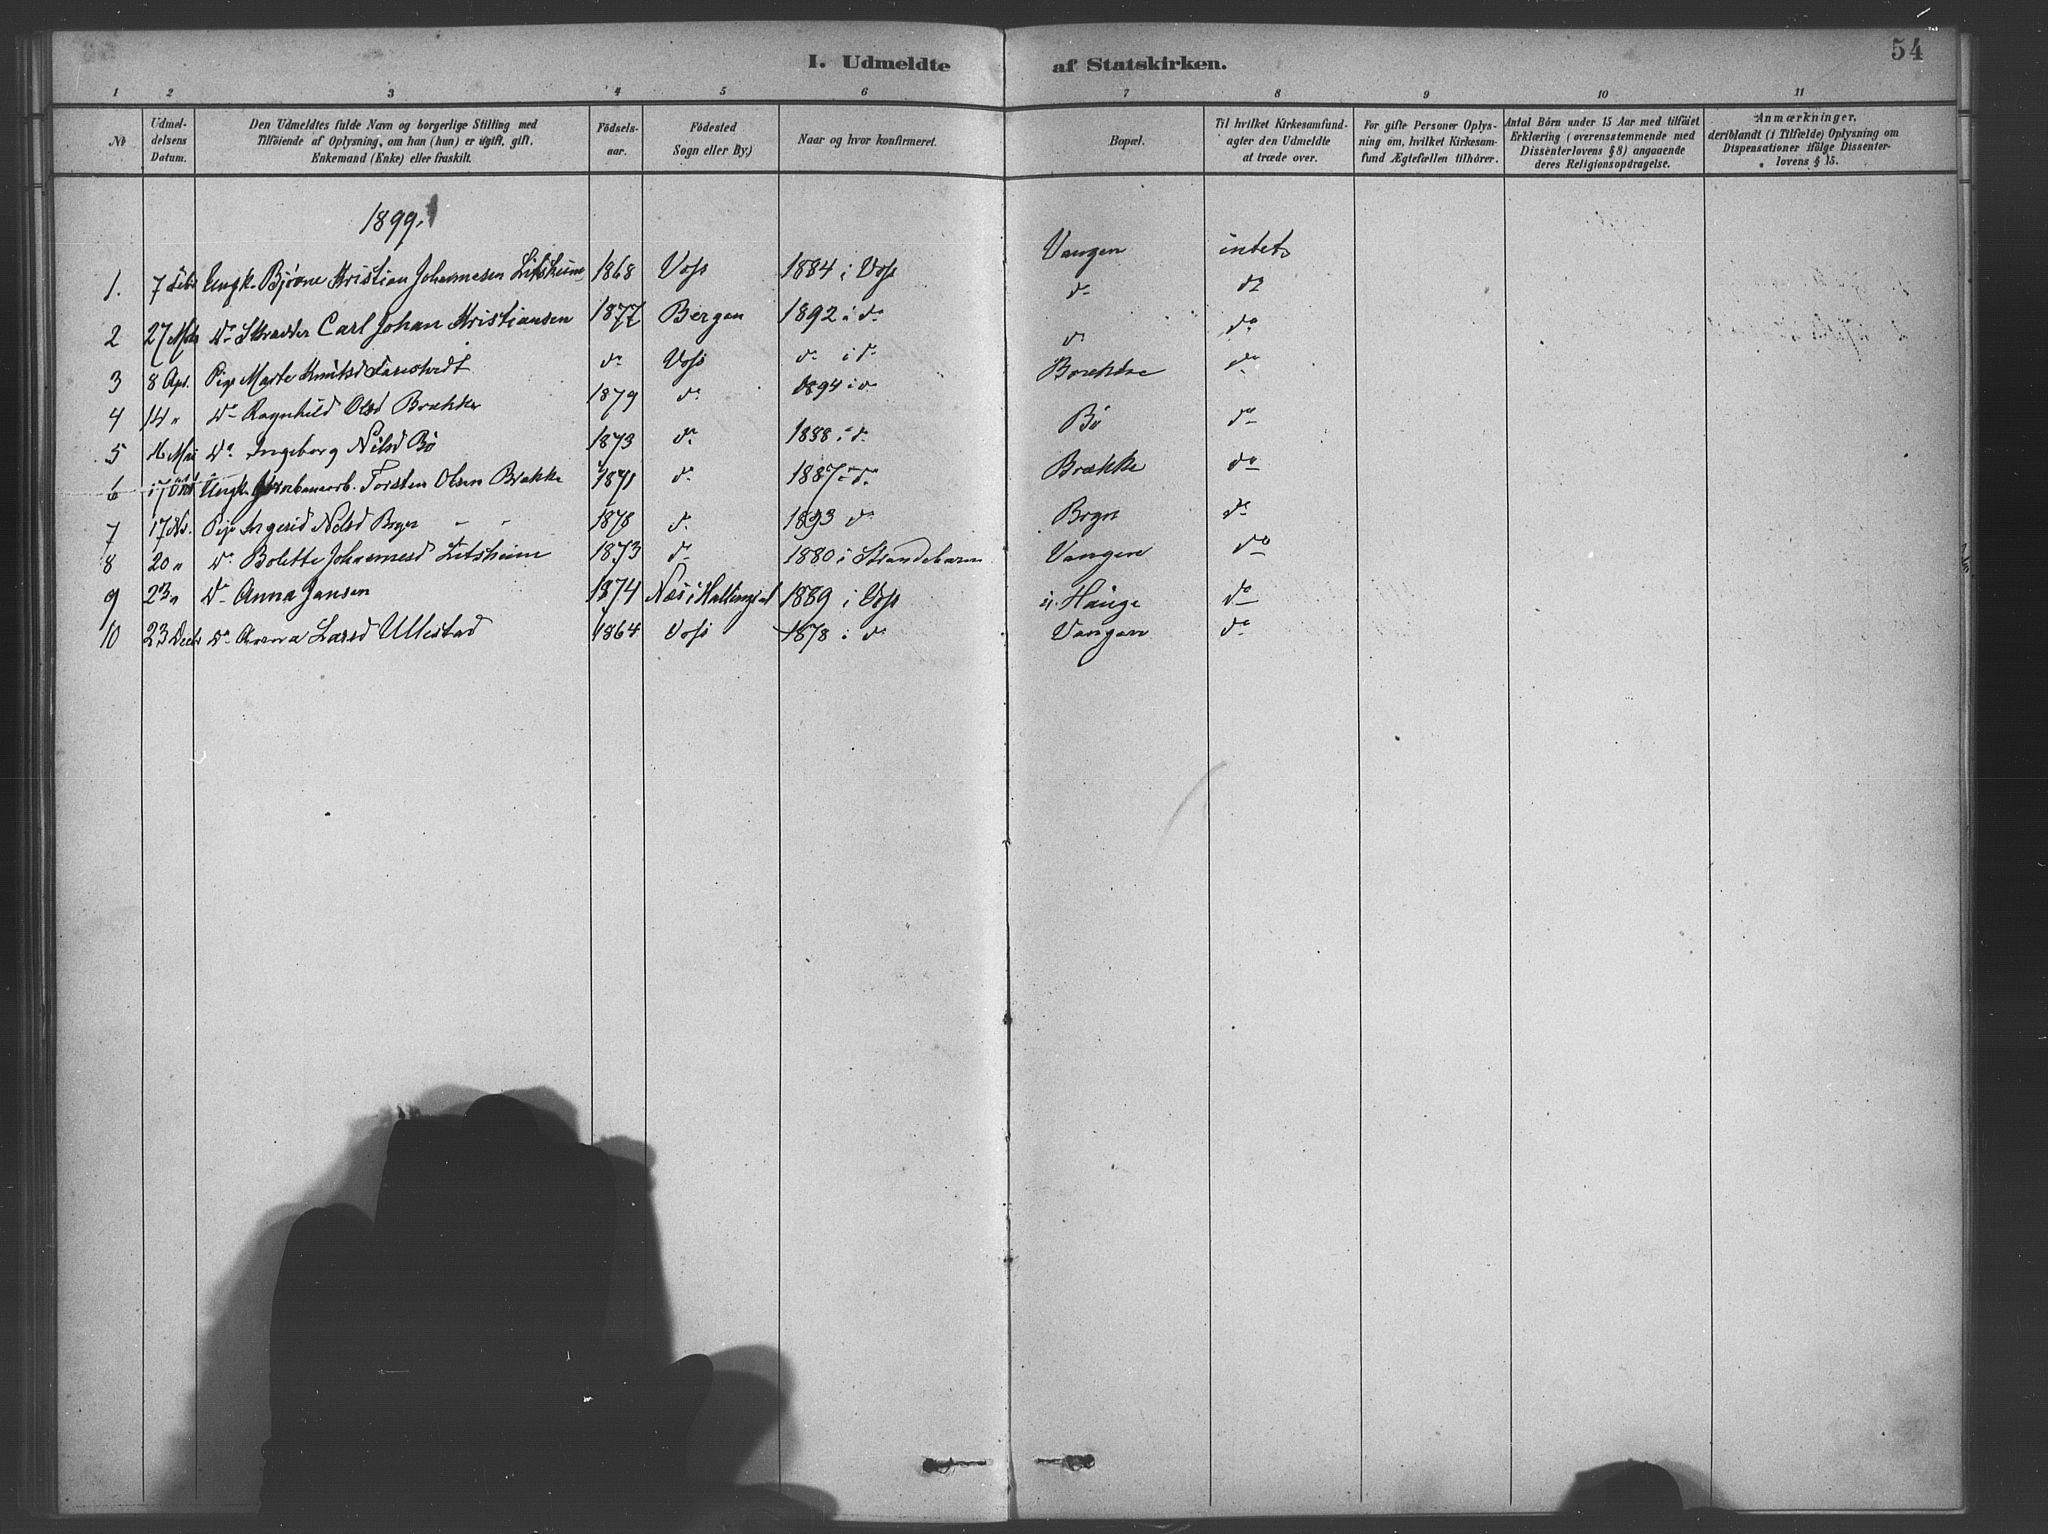 I. Udmeldte af Statskirken. 54
1 2 3 4 5 6 7 8 9 10 11
№ | Udmeldelsens Datum. | Den Udmeldtes fulde Navn og borgerlige Stilling med Tilföiende af Oplysning, om han (hun) er ugift, gift, Enkemand (Enke) eller fraskilt. | Födselsaar. | Födested Sogn eller By,) | Naar og hvor konfirmeret. | Bopæl. | Til hvilket Kirkesamfund agter den Udmeldte at træde over. | For gifte Personer Oplysning om, hvilket Kirkesamfund Ægtefællen tilhörer. | Antal Börn under 15 Aar med tilföiet Erklæring (overensstemmende med Dissenterlovens § 8) angaaende deres Religionsopdragelse. | Anmærkninger, deriblandt (i Tilfælde) Oplysning om Dispensationer ifölge Dissenterlovens § 15.
1899.
1. 7 Febr Ungk. Bjórne Kristian Johannesen Litsheim 1868 Voss 1884 i Voss Vangen intet
2 27 Mts Do Skrædder Carl Johan Kristiansen 1877 Bergen 1892 i do do do
3 8 Apr. Pige Marte Knutsd do Voss do i do do do
4 14 " Do Ragnhild Olsd Brække 1879 do 1894 i do Brække do
5 Mai Do Ingeborg Nilsd Bö 1873 do 1888 i do Bö do
6 17 Ungk. Torsten Olsen Brække 1871 do 1887 i do Brække do
7 17 Nv. Pige Ingerid Nilsd Bryn 1878 do 1893 do Bryn do
8 20 " Do Bolette Johannesd Litsheim 1873 do 1880 i Strandebarm Vangen do
9 23 " Do Anna Jansen 1874 Næs i Hallingdal 1889 i Voss Hauge do
10 23 Decbr Do Anna Larsd Ullestad 1864 Voss 1878 i do Vangen do